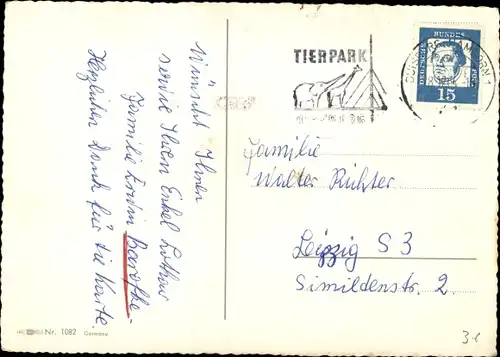 Wünscht Ihnen
sowie Ihren Enkel Lothar
Familie Erwin Barofke.
Herzlichen Dank für die Karte.
TIERPARK
DUISBURG-HAMBORN 1
DEUTSCHE BUNDESPOST
15
Familie
Walter Richter
Leipzig S 3
Simildenstr. 2.
Nr. 1082 Germany
31